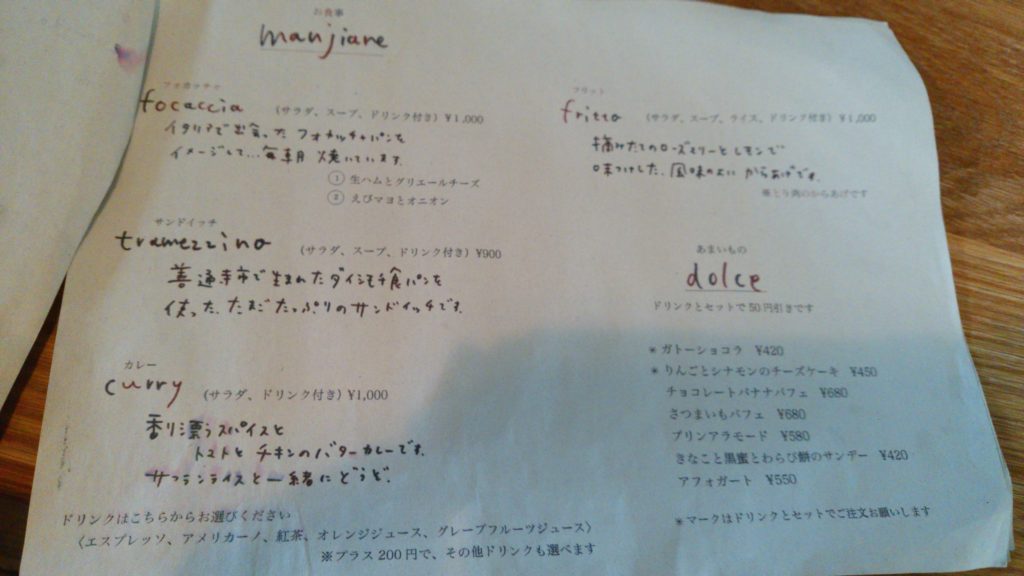 お食事
manjiare
フォカッチャ
focaccia (サラダ、スープ、ドリンク付き) ¥1,000
イタリアで出会った フォカッチャパンを
イメージして…毎朝 焼いています。
① 生ハムとグリエールチーズ
② えびマヨとオニオン
サンドイッチ
tramezzino (サラダ、スープ、ドリンク付き) ¥900
善通寺市で生まれたダイシモチ食パンを
使った、たまごたっぷりのサンドイッチです。
カレー
curry (サラダ、ドリンク付き) ¥1,000
香り漂うスパイスと
トマトとチキンのバターカレーです。
サフランライスと一緒にどうぞ。
ドリンクはこちらからお選びください
〈エスプレッソ、アメリカーノ、紅茶、オレンジジュース、グレープフルーツジュース〉
※プラス200円で、その他ドリンクも選べます
フリット
fritto (サラダ、スープ、ライス、ドリンク付き) ¥1,000
摘みたてのローズマリーとレモンで
味つけした、風味のよい からあげです。
※とり肉のからあげです
あまいもの
dolce
ドリンクとセットで50円引きです
*ガトーショコラ ¥420
*りんごとシナモンのチーズケーキ ¥450
チョコレートバナナパフェ ¥680
さつまいもパフェ ¥680
プリンアラモード ¥580
きなこと黒蜜とわらび餅のサンデー ¥420
アフォガート ¥550
*マークはドリンクとセットでご注文お願いします